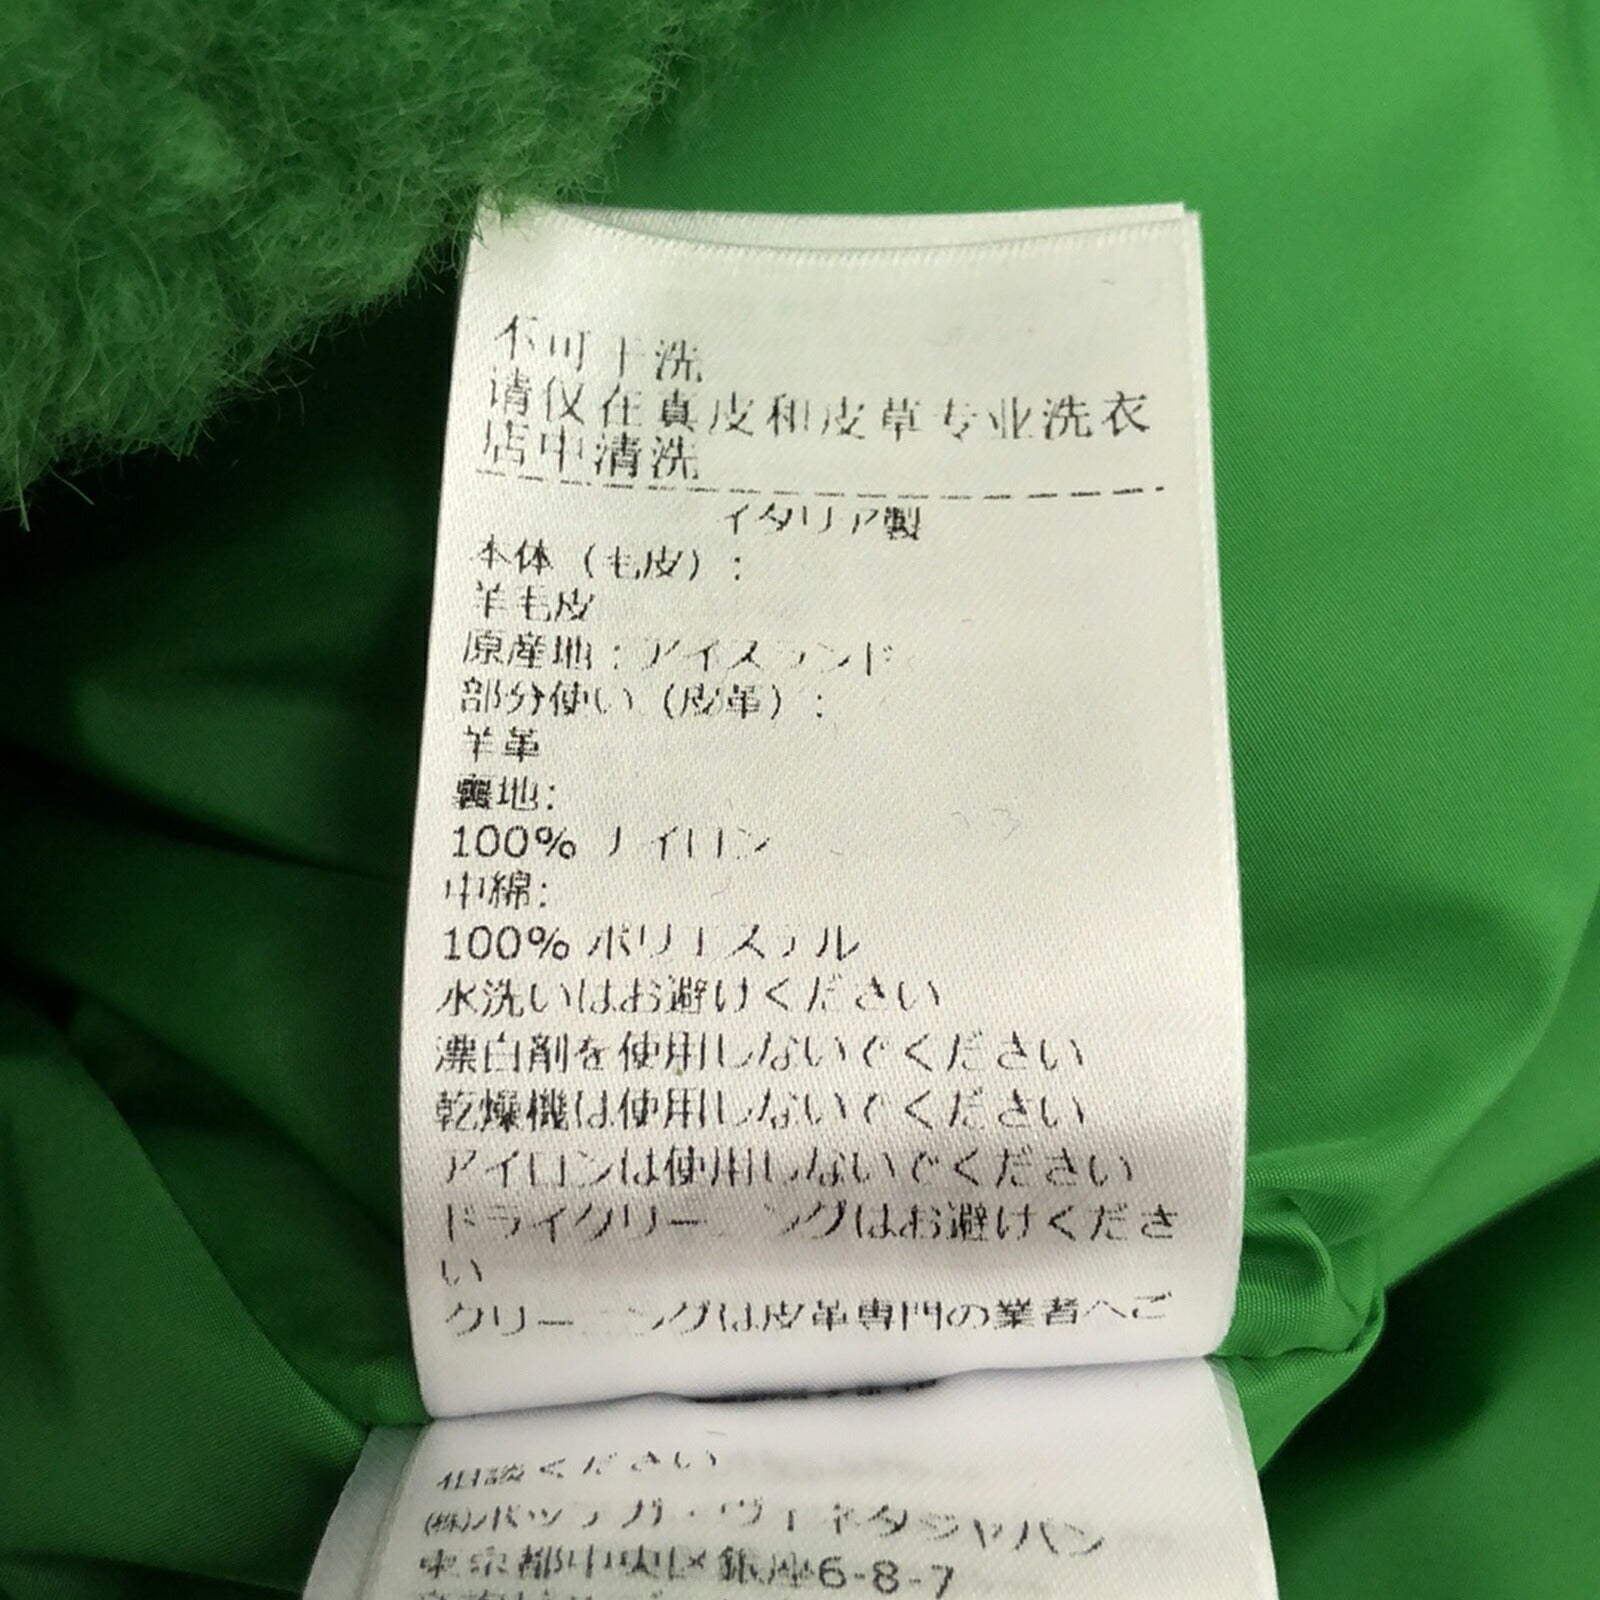 不可干洗
请仅在真皮和皮草专业洗衣
店中清洗
イタリア製
本体（毛皮）:
羊毛皮
原産地:アイスランド
部分使い（皮革）:
羊革
裏地:
100% ナイロン
中綿:
100% ポリエステル
水洗いはお避けください
漂白剤を使用しないでください
乾燥機は使用しないでください
アイロンは使用しないでください
ドライクリーニングはお避けくださ
い
クリーニングは皮革専門の業者へご
相談ください
(株)ボッテガ・ヴェネタジャパン
東京都中央区銀座6-8-7